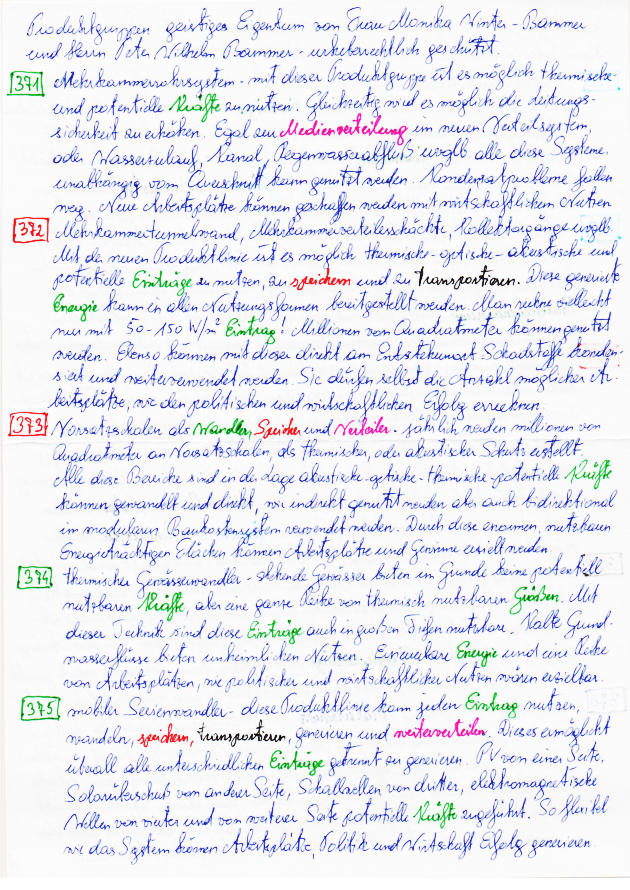 Produktgruppen geistiges Eigentum von Frau Monika Winter-Bammer
und Herrn Peter Wilhelm Bammer - urheberrechtlich geschützt.
371 Mehrkammerrohrsystem - mit dieser Produktgruppe ist es möglich thermische-
und potentielle Kräfte zu nutzen. Gleichzeitig wird es möglich die Leitungs-
sicherheit zu erhöhen. Egal zur Medienverteilung im neuen Verteilsystem,
oder Wasserzulauf, Kanal, Regenwasserabfluß woglb alle diese Systeme.
unabhängig vom Querschnitt kann genutzt werden. Kondensatprobleme fallen
weg. Neue Arbeitsplätze können geschaffen werden mit wirtschaftlichem Nutzen
372 Mehrkammertunnelwand, Mehrkammerverteilerschächte, Kollektorgänge woglb.
Mit der neuen Produktlinie ist es möglich thermische-optische-akustische und
potentielle Einträge zu nutzen, zu speichern und zu transportieren. Diese generierte
Energie kann in allen Nutzungsformen bereitgestellt werden. Man rechne vielleicht
nur mit 50-150 W/m² Eintrag! Millionen von Quadratmeter können genutzt
werden. Ebenso können mit dieser direkt am Entstehumort Schadstoffe konden-
siert und weiterverwendet werden. Sie dürfen selbst die Anzahl möglicher Ar-
beitsplätze, wie den politischen und wirtschaftlichen Erfolg errechnen.
373 Vorsatzschalen als Wandler, Speicher und Verteiler - jährlich werden millionen von
Quadratmeter an Vorsatzschalen, als thermischer, oder akustischer Schutz erstellt.
Alle diese Bereiche sind in der Lage akustische-optische-thermische-potentielle Kräfte
können gewandelt und direkt, wie indirekt genutzt werden aber auch bidirektional
im modularen Baukastensystem verwendet werden. Durch diese enormen, nutzbaren
Energieträchtigen Flächen können Arbeitsplätze und Gewinne erzielt werden
374 thermischer Gewässerwandler - stehende Gewässer bieten im Grunde keine potentiell
nutzbaren Kräfte, aber eine ganze Reihe von thermisch nutzbaren Größen. Mit
dieser Technik sind diese Einträge auch in großen Tiefen nutzbar. Kalte Grund-
wasserflüsse bieten unheimlichen Nutzen. Erneuerbare Energie und eine Reihe
von Arbeitsplätzen, wie politischer und wirtschaftlicher Nutzen wären erzielbar.
375 mobiler Serienwandler - diese Produktlinie kann jeden Eintrag nutzen,
wandeln, speichern, transportieren, generieren und weiterverteilen. Dieses ermöglicht
überall alle unterschiedlichen Einträge getrennt zu generieren. PV von einer Seite,
Solarüberschuß von anderer Seite, Schallwellen von dritter, elektromagnetische
Wellen von vierter und von weiterer Seite potentielle Kräfte zugeführt. So flexibel
wie das System können Arbeitsplätze, Politik und Wirtschaft Erfolg generieren.